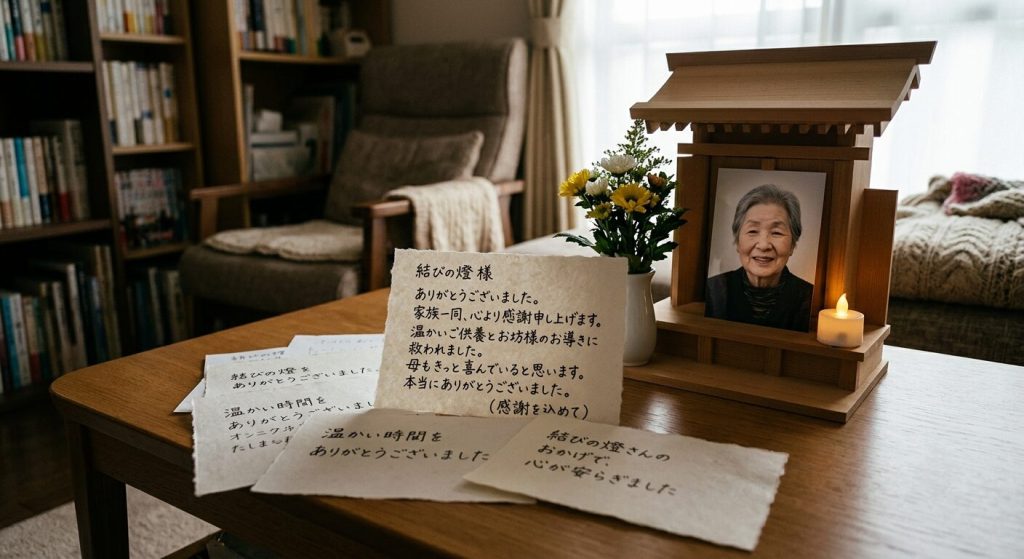 結びの燈様
ありがとうございました。
家族一同、心より感謝申し上げます。
温かいご供養とお坊様のお導きに
救われました。
母もきっと喜んでいると思います。
本当にありがとうございました。
(感謝を込めて)
結びの燈を
ありがとうございました
温かい時間を
ありがとうございまし
温かい時間を
ありがとうございました
結びの燈さんの
おかげで、
心が安らぎました